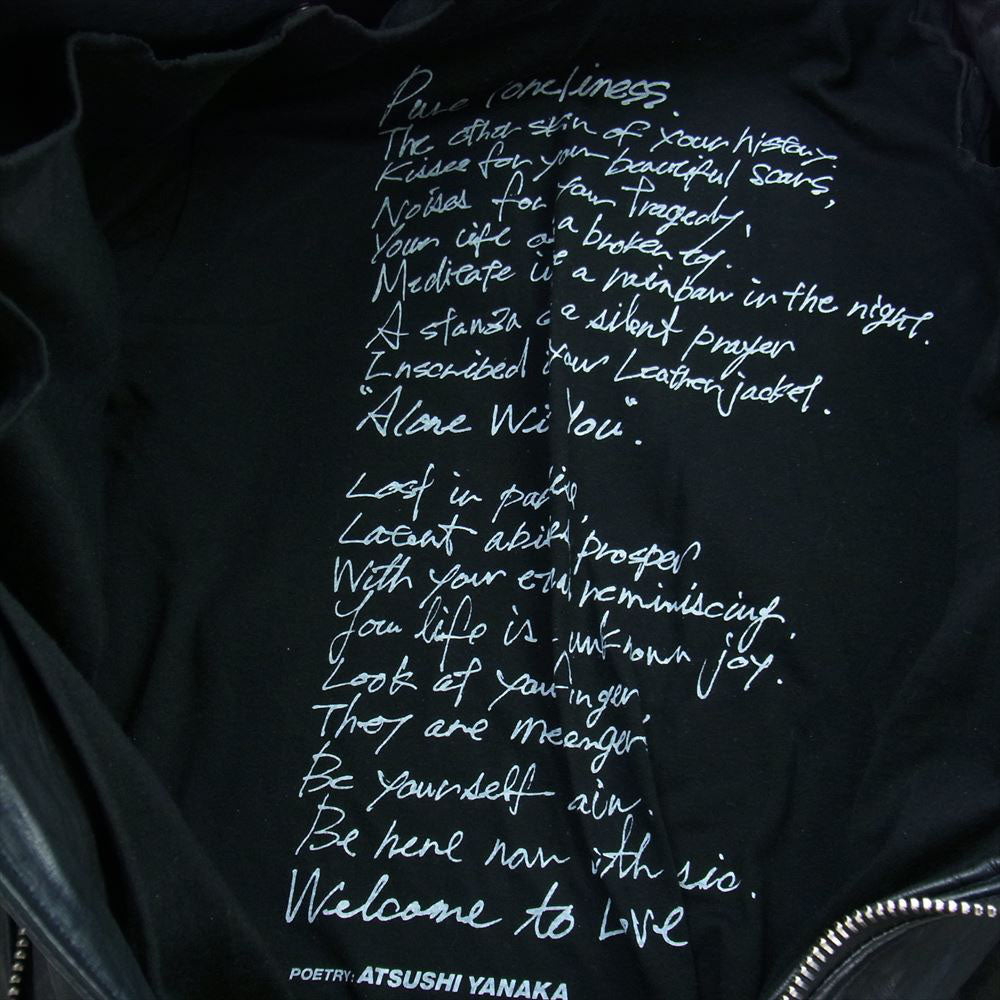 Pure loneliness.
The other skin of your history.
Kisses for your beautiful scars,
Noises for your Tragedy,
Your life a broken toy.
Meditate a rainbow in the night.
A stanza a silent prayer
Inscribed your Leather jacket.
"Alone With You".
Lost in
Latent prosper
With your reminiscing.
Your life is unknown joy.
Look at your finger,
They are
Be yourself
Be here now
Welcome to Love
POETRY: ATSUSHI YANAKA